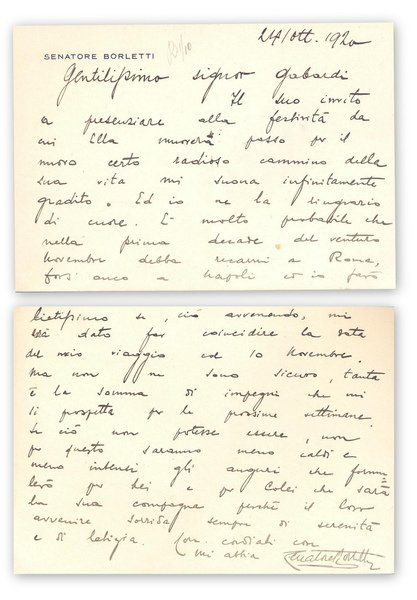 SENATORE BORLETTI
24/Ott. 1920
Gentilissimo signor Gabardi
Il suo invito
a presenziare alla festività da
cui Ella muoverà passo per il
nuovo certo radioso cammino della
sua vita mi suona infinitamente
gradito. Ed io ne la ringrazio
di cuore. È molto probabile che
nella prima decade del venturo
Novembre debba recarmi a Roma,
forse anco a Napoli ed io sarò
lietissimo se, ciò avvenendo, mi
sarà dato far coincidere la data
del mio viaggio col 10 Novembre.
Ma non ne sono sicuro, tanta
è la somma di impegni che mi
si prospetta per le prossime settimane.
Se ciò non potesse essere, non
per questo saranno meno caldi e
meno intensi gli auguri che formu
lerò per Lei e per Colei che sarà
la sua compagna perchè il loro
avvenire sorrida sempre di serenità
e di letizia. Con. cordiali con
mi abbia Senatore Borletti